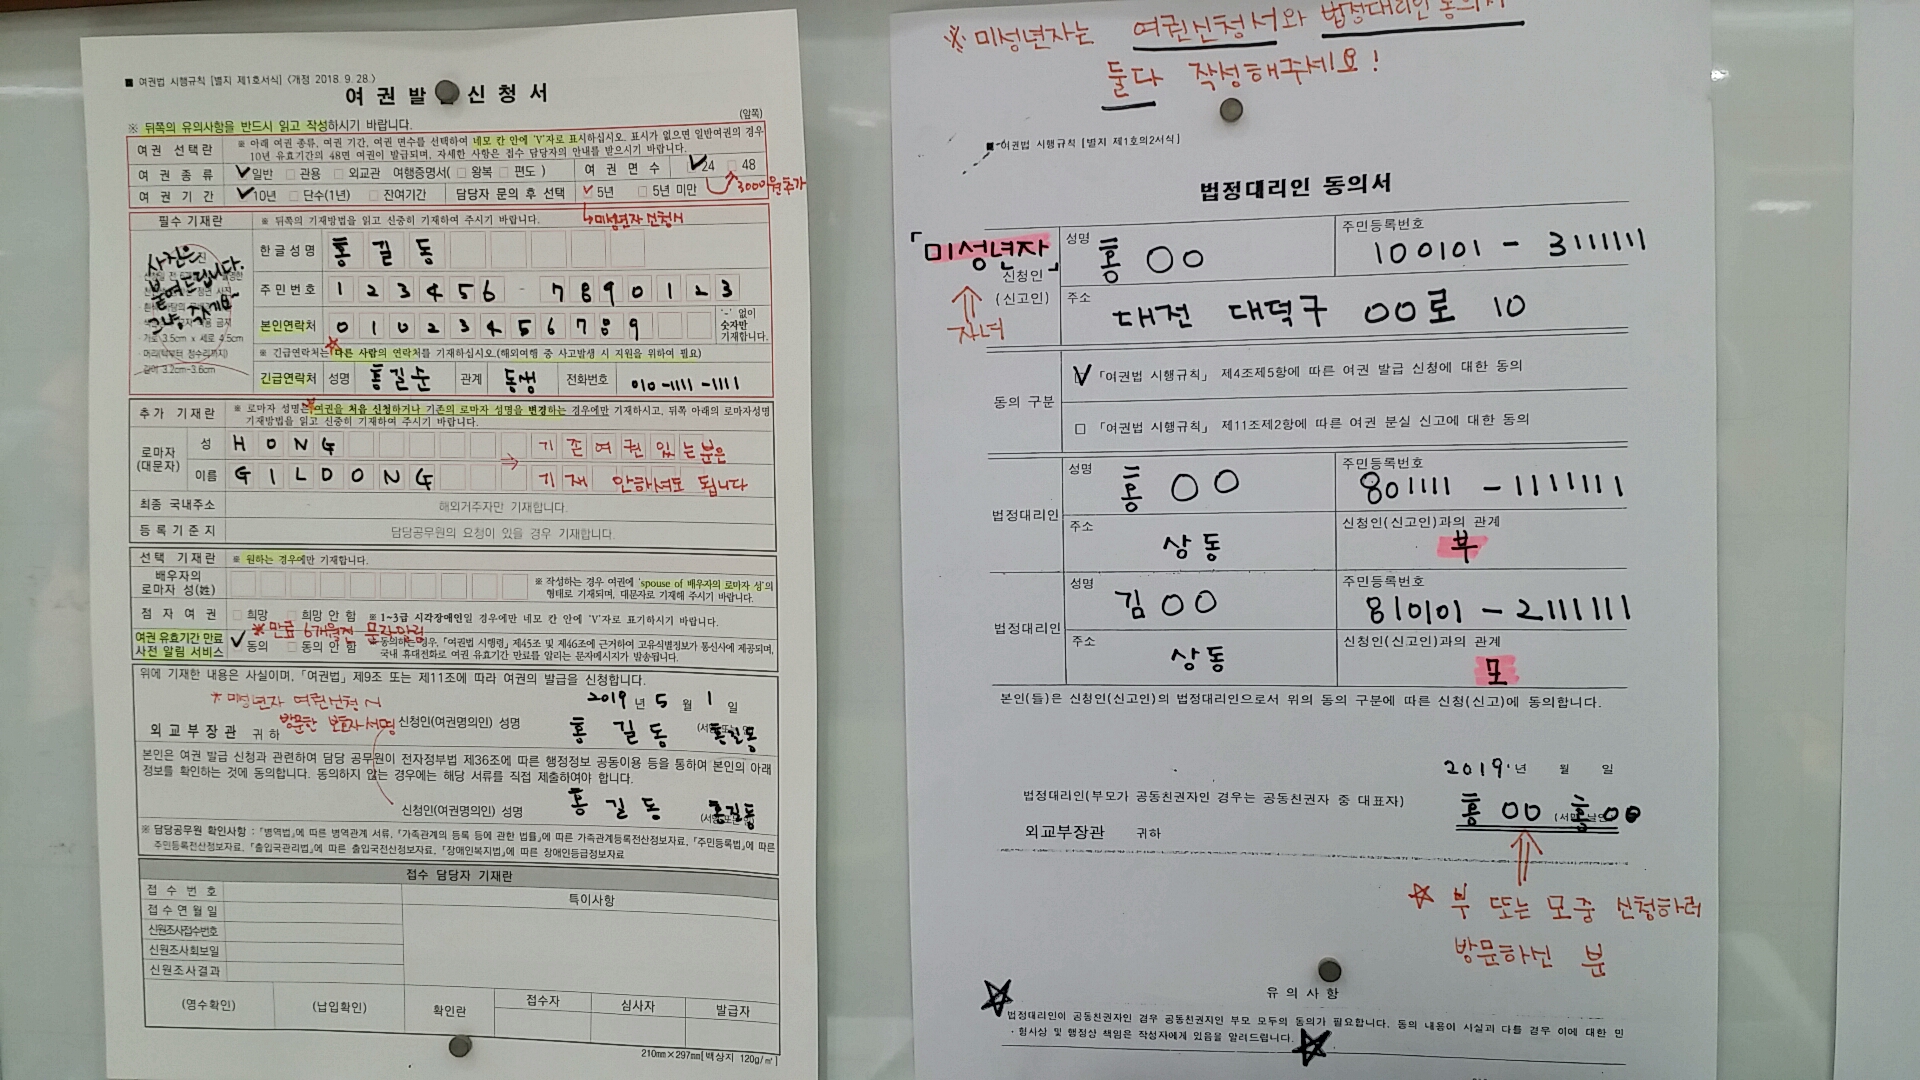 ■ 여권법 시행규칙 [별지 제1호서식] <개정 2018. 9. 28.>
여 권 발 신 청 서
(앞쪽)
※ 뒤쪽의 유의사항을 반드시 읽고 작성하시기 바랍니다.
여권 선택란
※ 아래 여권 종류, 여권 기간, 여권 면수를 선택하여 네모 칸 안에 'V'자로 표시하십시오. 표시가 없으면 일반여권의 경우
10년 유효기간의 48면 여권이 발급되며, 자세한 사항은 접수 담당자의 안내를 받으시기 바랍니다.
여 권 종 류 ✓일반 □ 관용 □ 외교관 여행증명서( □ 왕복 □ 편도 ) 여 권 면 수 ✓24 □ 48
여 권 기 간 ✓10년 □ 단수(1년) □ 잔여기간 담당자 문의 후 선택 ✓5년 □ 5년 미만 3000원추가
↳미성년자 신청시
필수 기재란 ※ 뒤쪽의 기재방법을 읽고 신중히 기재하여 주시기 바랍니다.
사진은
붙여드립니다.
가로 3.5cm x 세로 4.5cm
3.2cm~3.6cm
한글성명 홍 길 동
주민번호 1 2 3 4 5 6 - 7 8 9 0 1 2 3
본인연락처 0 1 0 2 3 4 5 6 7 8 9 '-' 없이 숫자만 기재합니다.
※ 긴급연락처는 다른 사람의 연락처를 기재하십시오.(해외여행 중 사고발생 시 지원을 위하여 필요)
긴급연락처 성명 홍길순 관계 동생 전화번호 010-1111-1111
추가 기재란 ※ 로마자 성명은 여권을 처음 신청하거나 기존의 로마자 성명을 변경하는 경우에만 기재하시고, 뒤쪽 아래의 로마자성명
기재방법을 읽고 신중히 기재하여 주시기 바랍니다.
로마자 (대문자)
성 H O N G ⇒ 기존여권 있는분은
이름 G I L D O N G 기재 안하셔도 됩니다
최종 국내주소 해외거주자만 기재합니다.
등록기준지 담당공무원의 요청이 있을 경우 기재합니다.
선택 기재란 ※ 원하는 경우에만 기재합니다.
배우자의 로마자 성(姓) ※ 작성하는 경우 여권에 'spouse of 배우자의 로마자 성'의
형태로 기재되며, 대문자로 기재해 주시기 바랍니다.
점 자 여 권 □ 희망 □ 희망 안 함 ※ 1~3급 시각장애인일 경우에만 네모 칸 안에 'V'자로 표기하시기 바랍니다.
※만료 6개월전 문자알림
여권 유효기간 만료 사전 알림 서비스 ✓동의 □ 동의 안 함
동의하는 경우, 「여권법 시행령」 제45조 및 제46조에 근거하여 고유식별정보가 통신사에 제공되며,
국내 휴대전화로 여권 유효기간 만료를 알리는 문자메시지가 발송됩니다.
위에 기재한 내용은 사실이며, 「여권법」 제9조 또는 제11조에 따라 여권의 발급을 신청합니다.
2019 년 5 월 1 일
*미성년자 여권신청시
방문한 보호자서명
신청인(여권명의인) 성명 홍 길 동 홍길동
외교부장관 귀하
본인은 여권 발급 신청과 관련하여 담당 공무원이 전자정부법 제36조에 따른 행정정보 공동이용 등을 통하여 본인의 아래
정보를 확인하는 것에 동의합니다. 동의하지 않는 경우에는 해당 서류를 직접 제출하여야 합니다.
신청인(여권명의인) 성명 홍 길 동 홍길동
※ 담당공무원 확인사항 : 「병역법」에 따른 병역관계 서류, 「가족관계의 등록 등에 관한 법률」에 따른 가족관계등록전산정보자료, 「주민등록법」에 따른
주민등록전산정보자료, 「출입국관리법」에 따른 출입국전산정보자료, 「장애인복지법」에 따른 장애인등급정보자료
접수 담당자 기재란
접 수 번 호 특이사항
접수연월일
신원조사접수번호
신원조사회보일
신원조사결과
(영수확인) (납입확인) 확인란 접수자 심사자 발급자
210㎜×297㎜[백상지 120g/㎡]
※ 미성년자는 여권신청서와 법정대리인 동의서
둘다 작성해주세요!
■ 여권법 시행규칙 [별지 제1호의2서식]
법정대리인 동의서
「미성년자」
신청인
(신고인)
자녀
성명 홍 OO 주민등록번호 100101 - 3111111
주소 대전 대덕구 OO로 10
동의 구분
✓ 「여권법 시행규칙」 제4조제5항에 따른 여권 발급 신청에 대한 동의
□ 「여권법 시행규칙」 제11조제2항에 따른 여권 분실 신고에 대한 동의
법정대리인 성명 홍 OO 주민등록번호 801111 - 1111111
주소 상동 신청인(신고인)과의 관계 부
법정대리인 성명 김 OO 주민등록번호 810101 - 2111111
주소 상동 신청인(신고인)과의 관계 모
본인(들)은 신청인(신고인)의 법정대리인으로서 위의 동의 구분에 따른 신청(신고)에 동의합니다.
2019. 년 월 일
법정대리인(부모가 공동친권자인 경우는 공동친권자 중 대표자) 홍 OO 홍OO
외교부장관 귀하
☆ 부 또는 모중 신청하러
방문하신 분
유 의 사 항
법정대리인이 공동친권자인 경우 공동친권자인 부모 모두의 동의가 필요합니다. 동의 내용이 사실과 다를 경우 이에 대한 민
·형사상 및 행정상 책임은 작성자에게 있음을 알려드립니다.